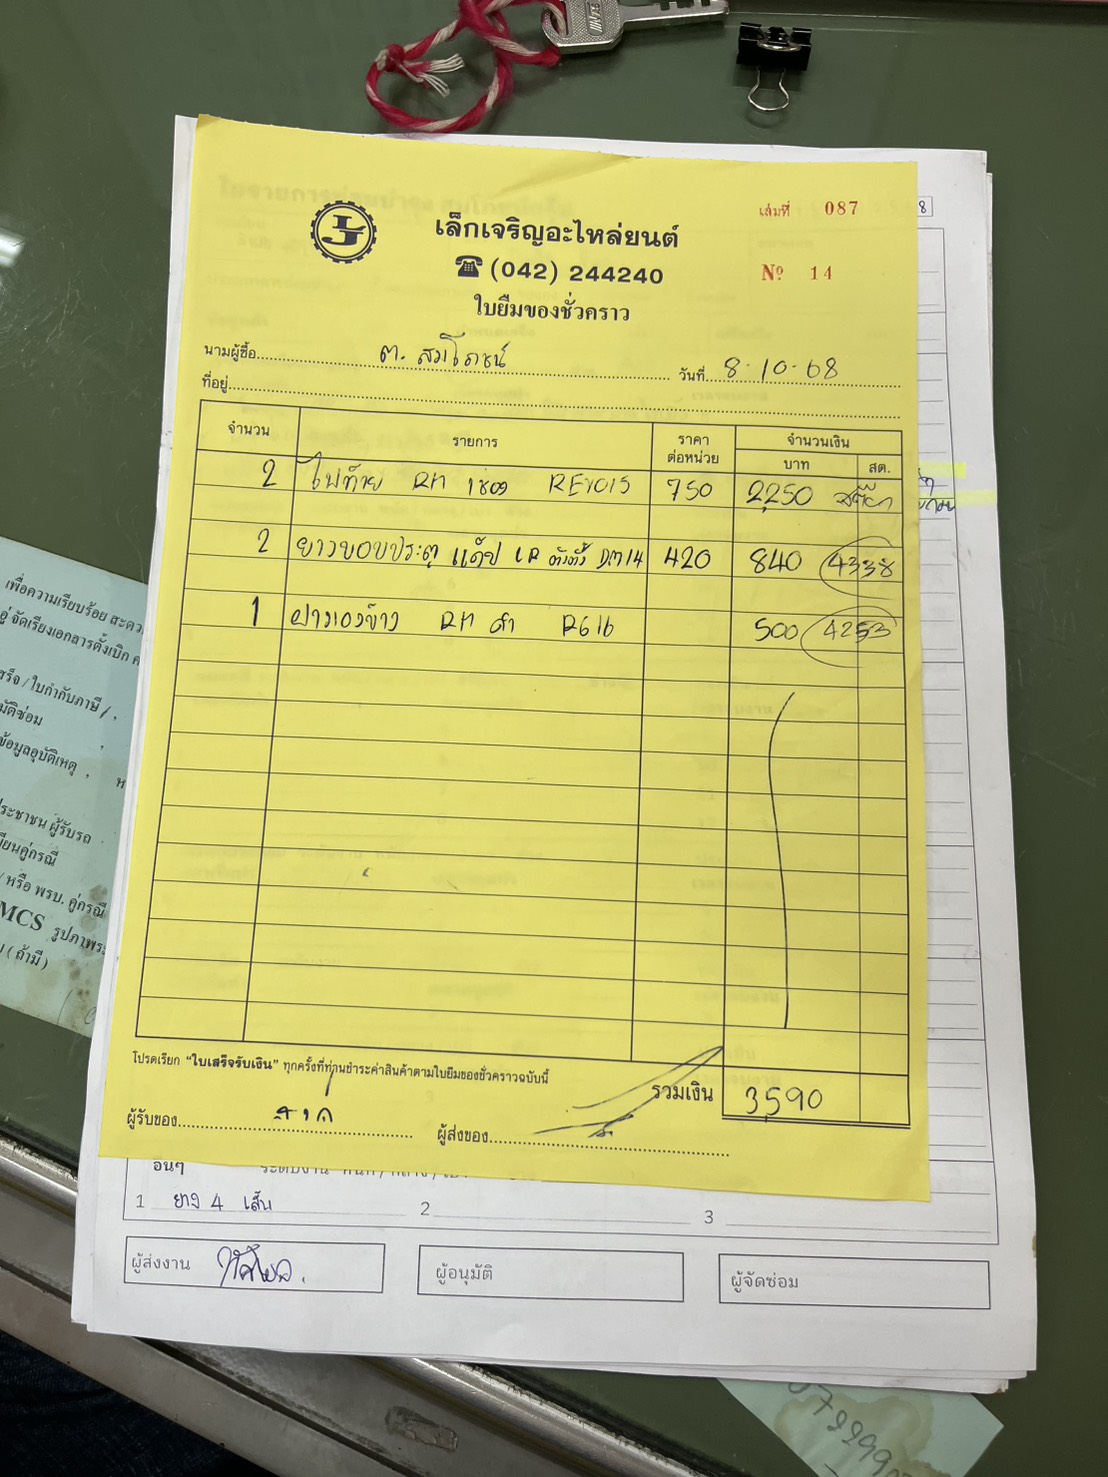 เล่มที่ 087
LJ
เล็กเจริญอะไหล่ยนต์
(042) 244240
Nº 14
ใบยืมของชั่วคราว
นามผู้ซื้อ ต. สมโภชน์ วันที่ 8-10-68
ที่อยู่
จำนวน รายการ ราคาต่อหน่วย จำนวนเงิน
บาท สต.
2 ไฟท้าย RH REVO15 750 2,250
2 ยางขอบประตู แค็ป LR DM14 420 840 4338
1 RH ดำ R616 500 4253
โปรดเรียก "ใบเสร็จรับเงิน" ทุกครั้งที่ท่านชำระค่าสินค้าตามใบยืมของชั่วคราวฉบับนี้
รวมเงิน 3,590
ผู้รับของ
ผู้ส่งของ
อื่นๆ
1 ยาง 4 เส้น 2 3
ผู้ส่งงาน
ผู้อนุมัติ
ผู้จัดซ่อม
8
เพื่อความเรียบร้อย
จัดเรียงเอกสารตั้งเบิก
/ ใบกำกับภาษี /
ข้อมูลอุบัติเหตุ ,
ประชาชน ผู้รับรถ
/ หรือ พรบ. คู่กรณี
MCS
(ถ้ามี)